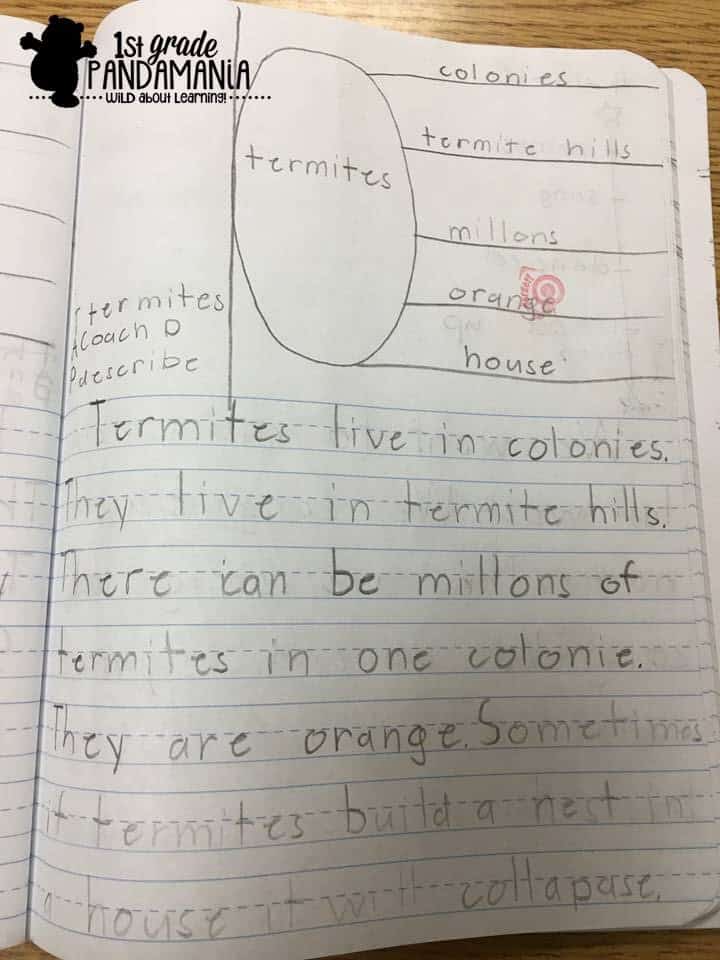 1st grade
PANDAMANIA
WILD about Learning!
colonies
termite hills
termites
millons
orange
house
termites
A Coach D
P describe
Termites live in colonies.
They live in termite hills.
There can be millons of
termites in one colonie.
They are orange. Sometimes
if termites build a nest in
a house it will collapase.